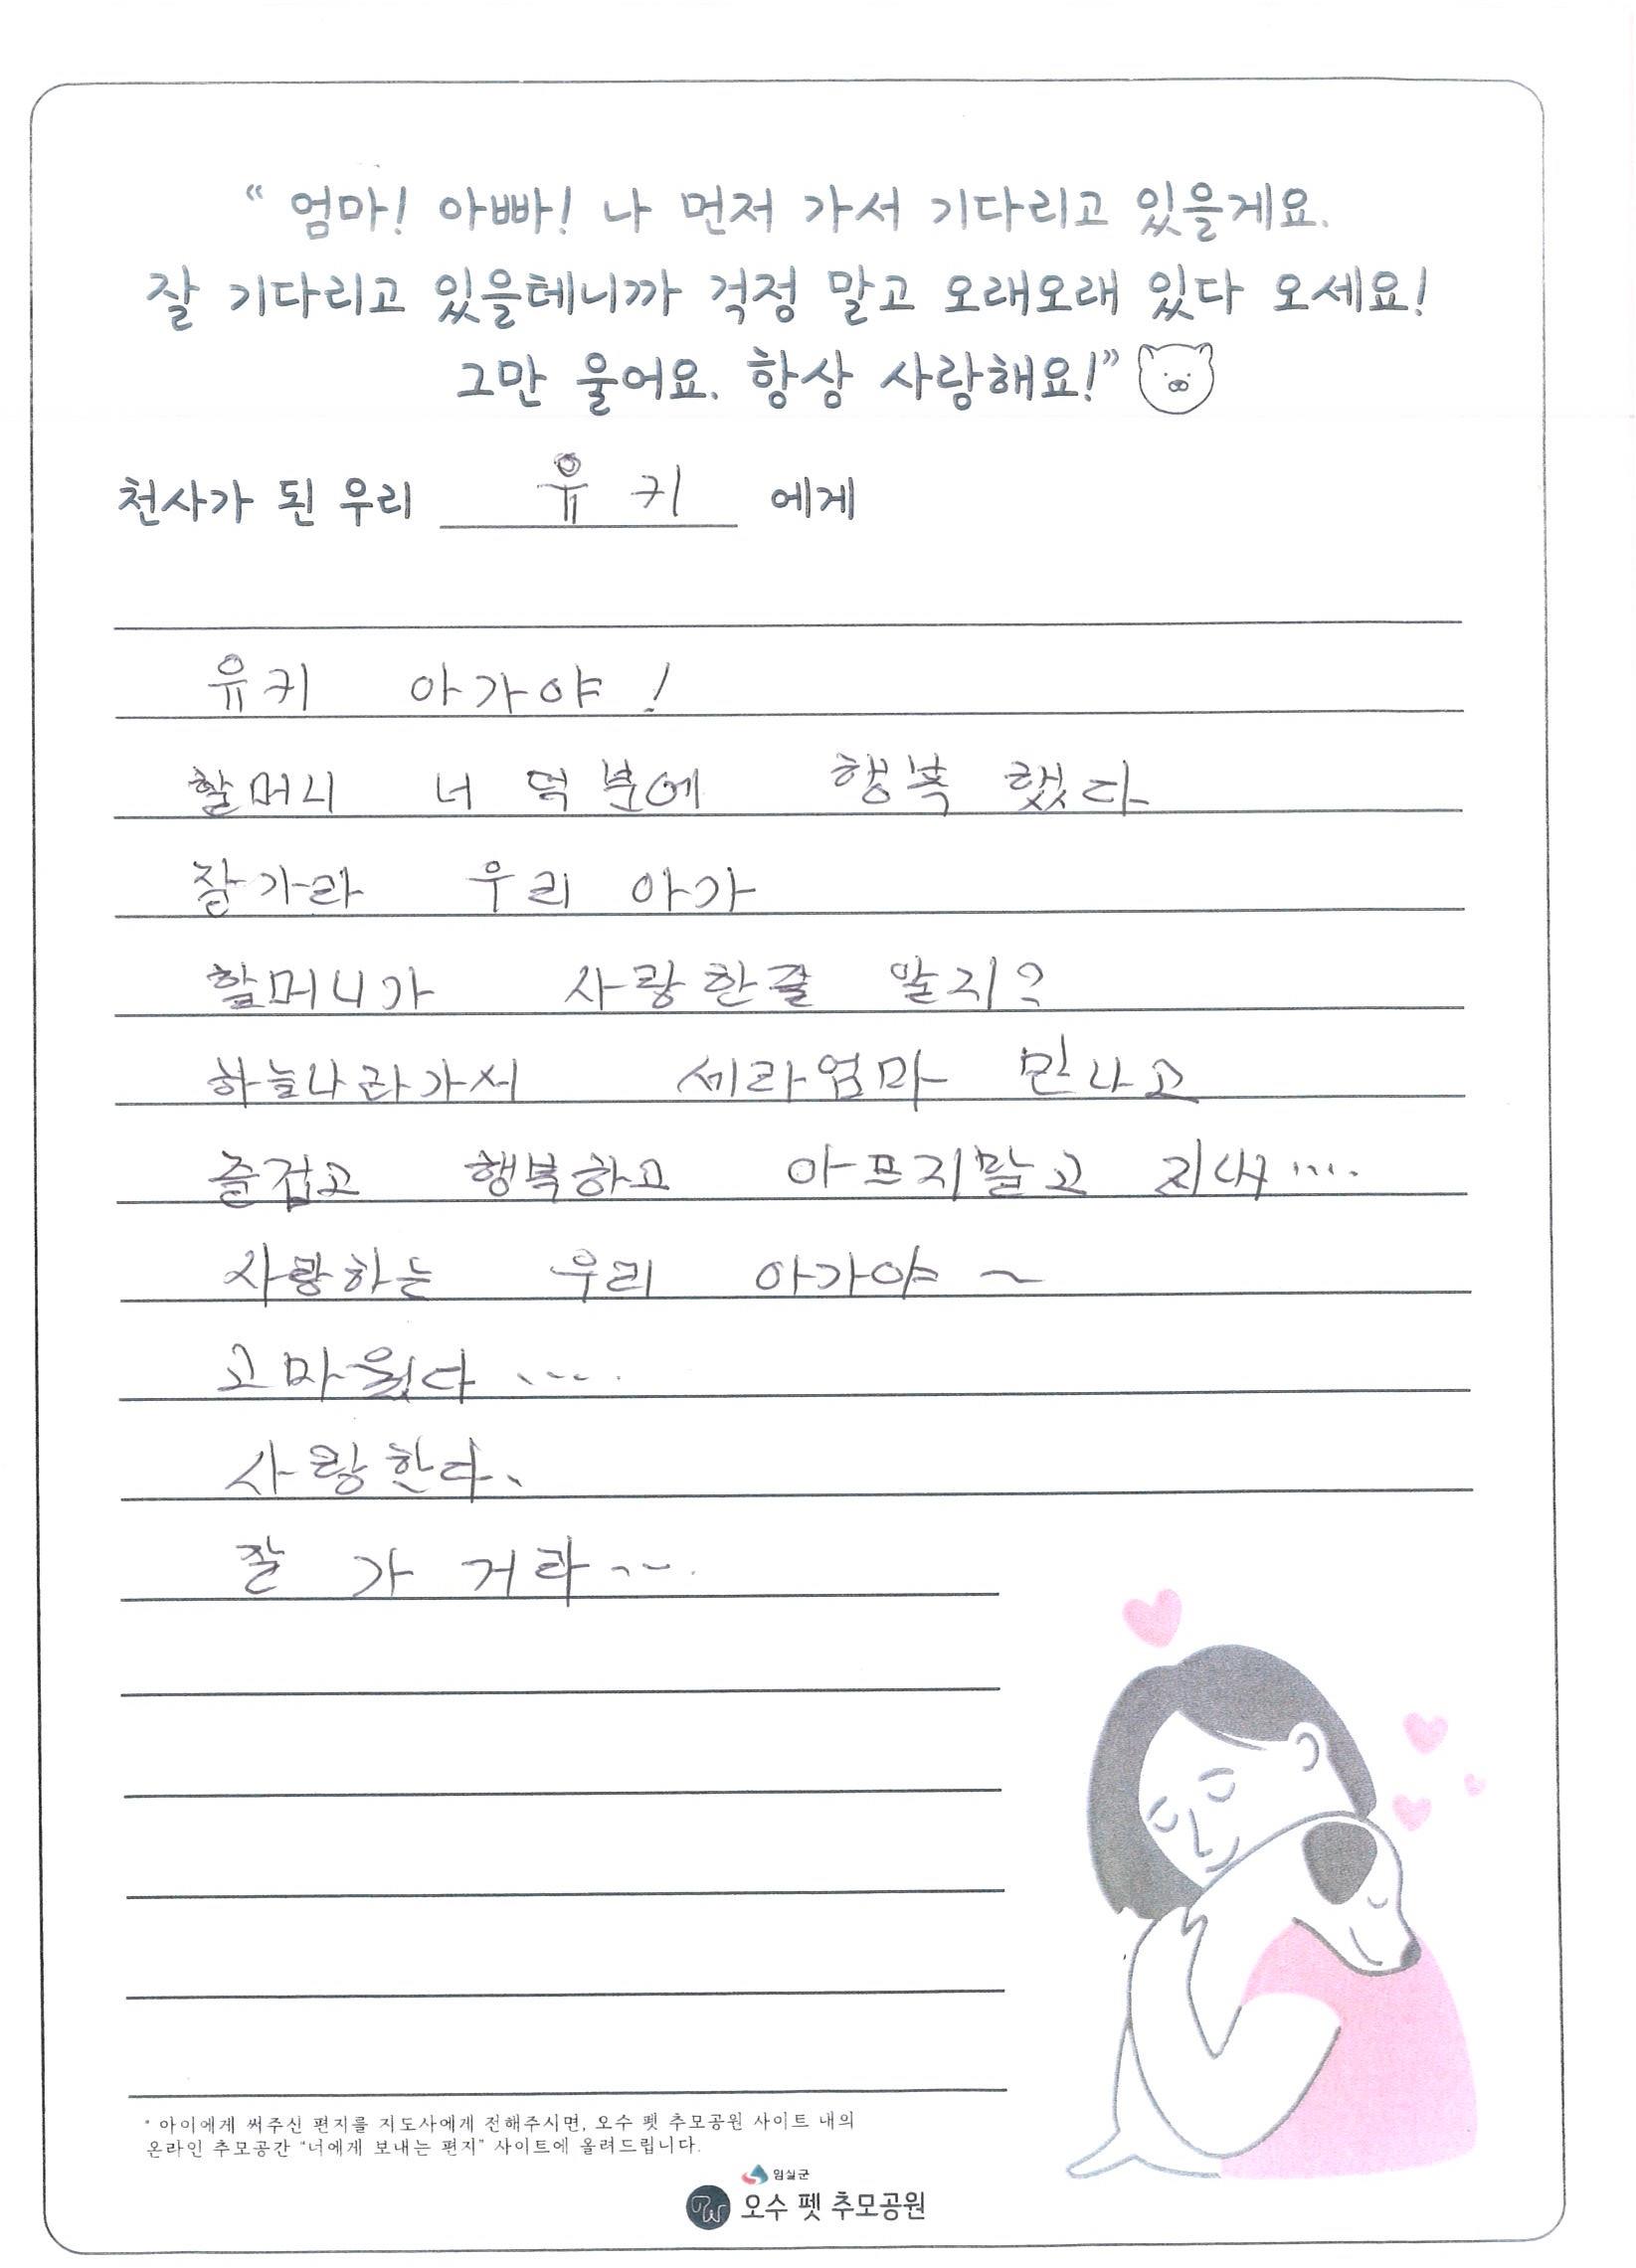 “ 엄마! 아빠! 나 먼저 가서 기다리고 있을게요.
잘 기다리고 있을테니까 걱정 말고 오래오래 있다 오세요!
그만 울어요. 항상 사랑해요!”
천사가 된 우리 유키 에게
유키 아가야!
할머니 너 덕분에 행복 했다
잘가라 우리 아가
할머니가 사랑한줄 알지?
하늘나라가서 세라엄마 만나고
즐겁고 행복하고 아프지말고 지내....
사랑하는 우리 아가야~
고마웠다....
사랑한다.
잘 가거라...
* 아이에게 써주신 편지를 지도사에게 전해주시면, 오수 펫 추모공원 사이트 내의
온라인 추모공간 “너에게 보내는 편지” 사이트에 올려드립니다.
임실군
오수 펫 추모공원